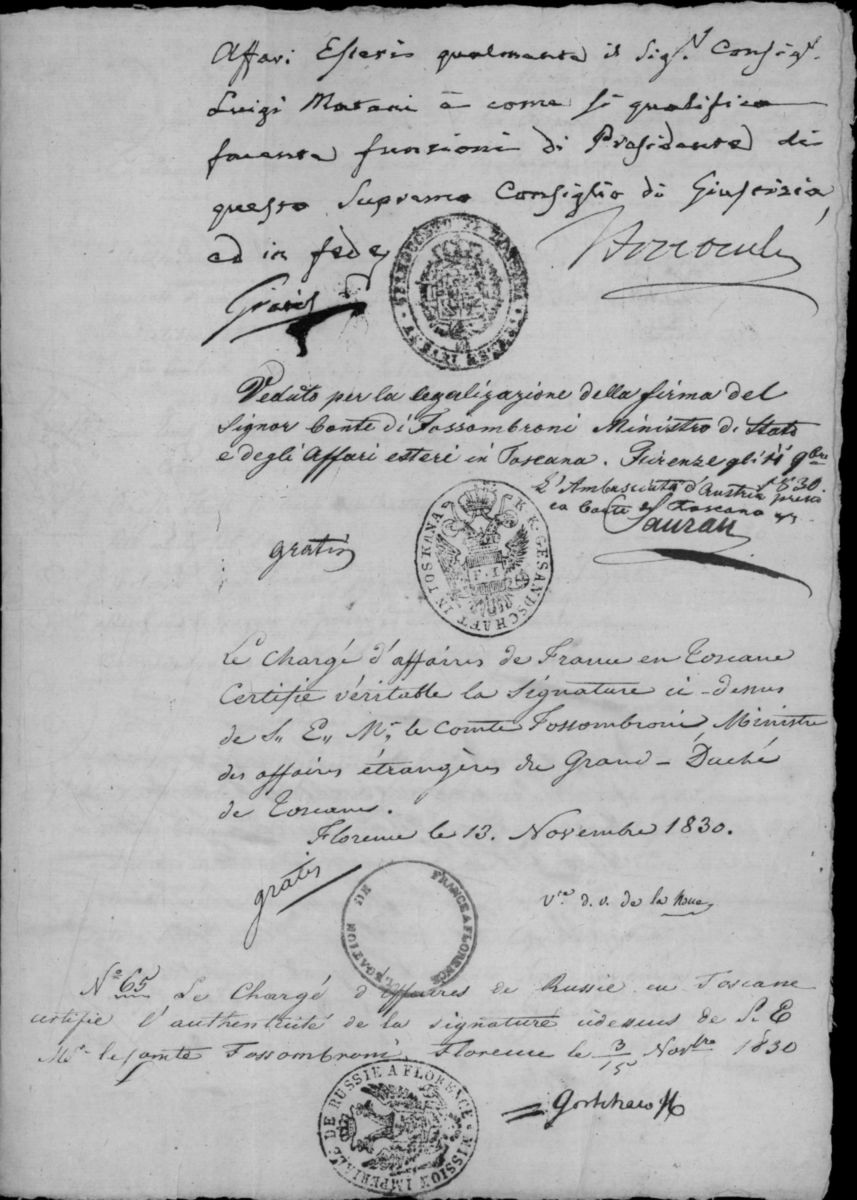 Affari Esteri qualmente il Sig.r Consigl.
Luigi Matani è come si qualifica
facente funzioni di Presidente di
questo Supremo Consiglio di Giustizia,
ed in fede
Gratis
GRANDUCATO DI TOSCANA
Veduto per la legalizazione della firma del
Signor Conte di Fossombroni Ministro di Stato
e degli Affari esteri in Toscana. Firenze gli 11 9bre
1830.
L'Ambasciata d'Austria presso
la Corte di Toscana
Sauran
gratis
K. K. GESANDSCHAFT IN TOSKANA
F. I
Le Chargé d'affaires de France en Toscane
Certifie véritable la Signature ci-dessus
de S. E. Mr. le Comte Fossombroni, Ministre
des affaires étrangères du Grand-Duché
de Toscane.
Florence le 13. Novembre 1830.
gratis
Vte d. v. de la Noue
LEGATION DE FRANCE A FLORENCE
No. 65 Le Chargé d'Affaires de Russie en Toscane
certifie l'authenticité de la signature cidessus de S. E
Mr. le Comte Fossombroni, Florence le 3/15 Novbre 1830
Gortchacoff
MISSION IMPERIALE DE RUSSIE A FLORENCE